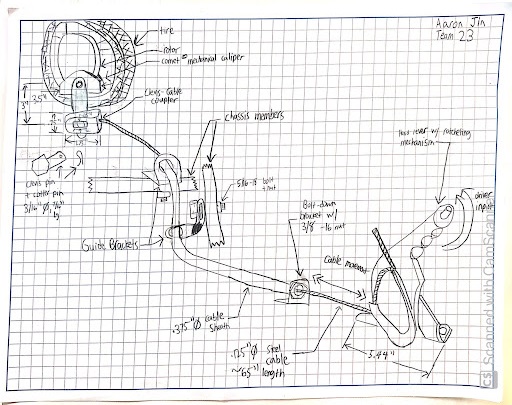 Aaron Jin
Team 23
tire
rotor
comet mechanical caliper
clevis-cable
coupler
3"
chassis members
hand lever w/ ratcheting
mechanism
driver
input
clevis pin
+ cotter pin
3/16" Ø, 3/4"
lg
5/16-18 bolt
+ nut
Bolt-down
bracket w/
3/8-16 nut
Guide Brackets
cable movement
.375" Ø cable
sheath
.125" Ø steel
cable
~65" length
5.44"
CS Scanned with CamScanner